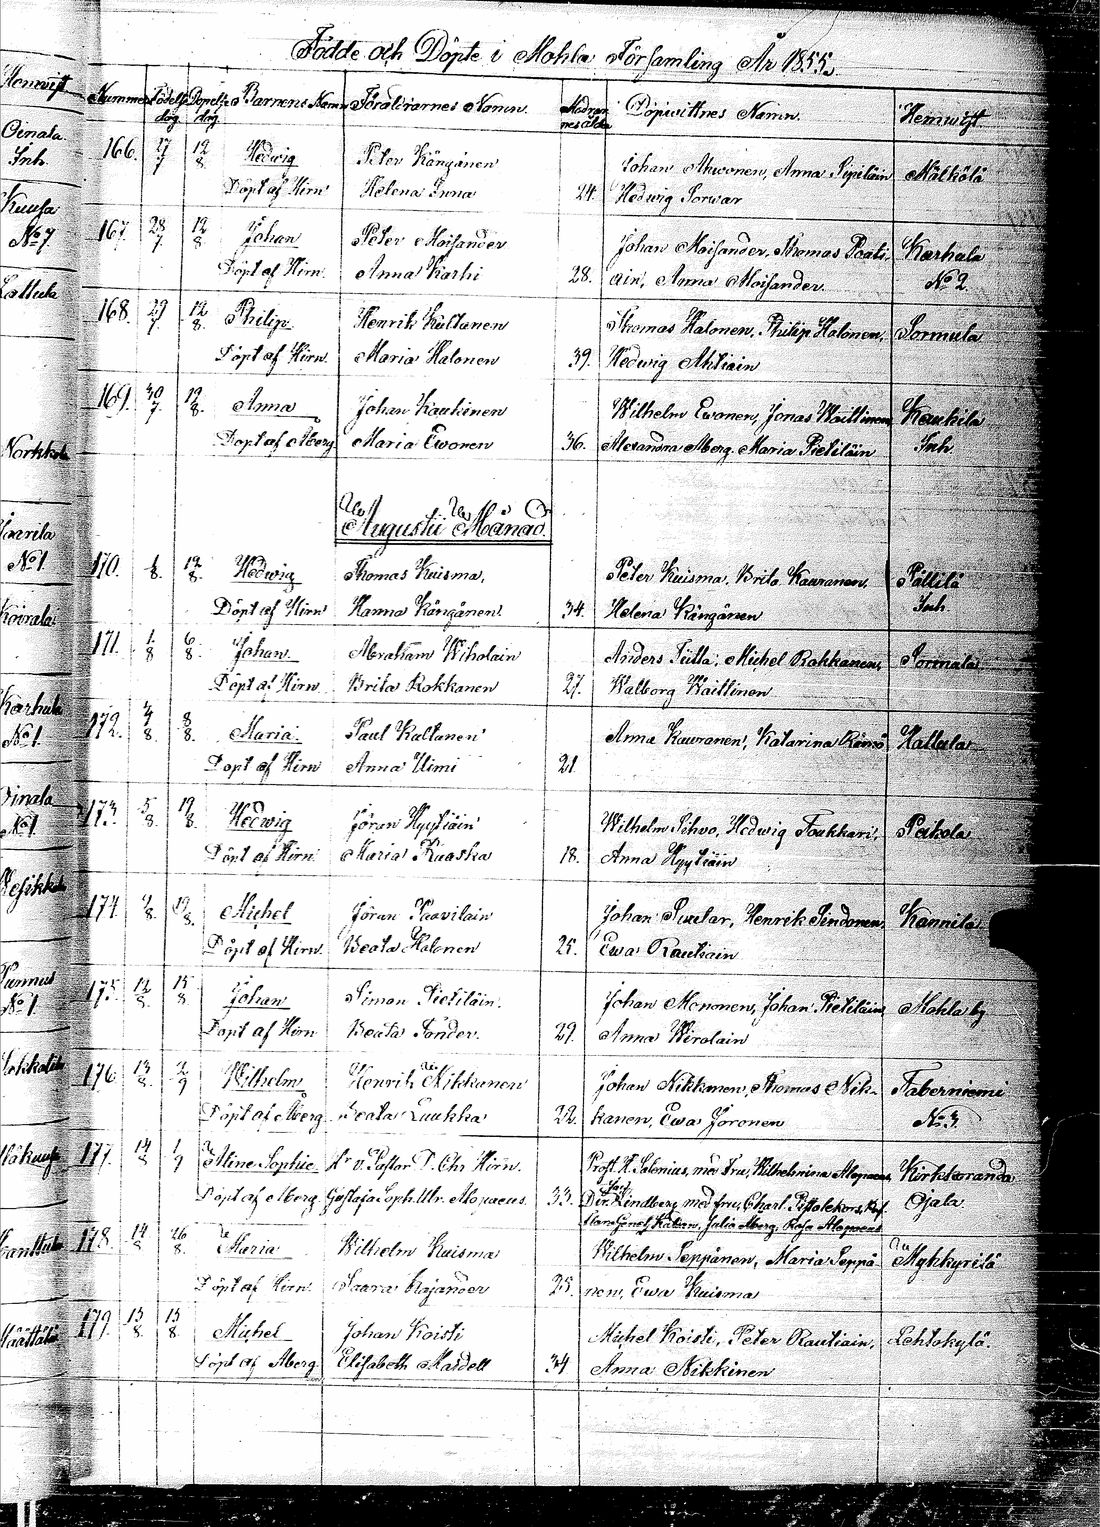 Födde och Döpte i Mohla Församling År 1855.
Hemvist
Nummer Födelse dag Döpelse dag Barnens Namn Föräldrarnes Namn. Modrenes ålder Döpvittnes Namn. Hemvist
Oinala
Inh.
166. 27/7 12/8 Hedwig Peter Kängänen Johan Akwonen, Anna Pipiläin Mälkölä
Döpt af Hirn Helena Inna 24. Hedwig Sorwar
Kuusa
No 7
167. 28/7 12/8 Johan Peter Moisander Johan Moisander, Thomas Poati- Karhula
Döpt af Hirn. Anna Karhi 28. ain, Anna Moisander. No 2.
Lattula
168. 29/7 12/8 Philip Henrik Kultanen Thomas Halonen, Philip Halonen, Sormula
Döpt af Hirn. Maria Halonen 39. Hedwig Ahtiain
169. 30/7 12/8 Anna Johan Kaukinen Wilhelm Ewonen, Jonas Waittinen Kaukila
Döpt af Åberg Maria Ewonen 36. Alexandra Åberg. Maria Pietiläin Inh.
Augustii Månad.
No 1
170. 12/8 Hedwig Thomas Kuisma, Peter Kuisma, Brita Kauranen, Pällilä
Döpt af Hirn Hanna Kängänen 34. Helena Kängänen Inh.
171. 1/8 6/8 Johan Abraham Wiholain Anders Tutta, Michel Rokkanen,
Döpt af Hirn Brita Rokkanen 27. Walborg Waittinen
Karhula
No 1
172. 8/8 Maria. Paul Kaltanen Anna Kauranen, Katarina Hattula
Döpt af Hirn Anna Uimi 21.
Oinala
No 1
173. 5/8 12/8 Hedwig Jöran Hyytiäin Wilhelm Sihvo, Hedwig Toukkari, Peikola
Döpt af Hirn. Maria Kuaska 18. Anna Hyytiäin
174 12/8 Michel Jöran Paavilain Johan Pusetar, Henrik Sindonen, Kannila
Döpt af Hirn. Beata Halonen 25. Ewa Rautiain
No 1
175. 12/8 15/8 Johan Simon Pietiläin. Johan Mononen, Johan Pietiläin Mohla by
Döpt af Hirn Beata Tonder. 29. Anna Wirolain
176. 13/8 2/9 Wilhelm Henrik Nikkanen Johan Nikkanen, Thomas Nik- Taberniemi
Döpt af Åberg Beata Luukka 22. kanen, Ewa Joronen No 3.
177. 14/8 1/9 Aline Sophie Hr v. Pastor D. Chr Hirn. Prost K. Salenius, med fru, Wilhelmina Alopaeus, Kirksaranda
Döpt af Åberg. Gustafa Soph. Ulr. Alopaeus. 33. Kindberg, med fru, Charl. Ojala.
Julia Åberg, Rosa Alopaeus
178. 14/8 26/8 Maria Wilhelm Kuisma Wilhelm Seppänen, Maria Seppä- Mykkyrilä
Döpt af Hirn. Saara Rajander 25. nen, Ewa Kuisma
179. 15/8 15/8 Michel Johan Koisti Michel Koisti, Peter Rautiain, Lehtokylä.
Döpt af Åberg. Elisabeth Mardell 34 Anna Nikkinen